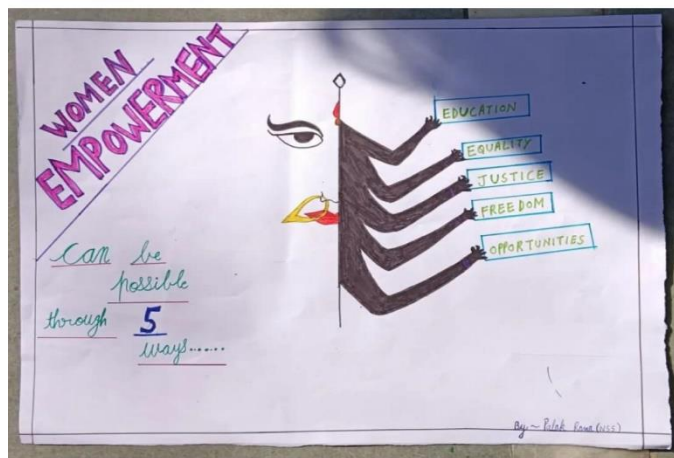 WOMEN
EMPOWERMENT
can be
possible
through 5
ways......
EDUCATION
EQUALITY
JUSTICE
FREEDOM
OPPORTUNITIES
By ~ Palak (NSS)